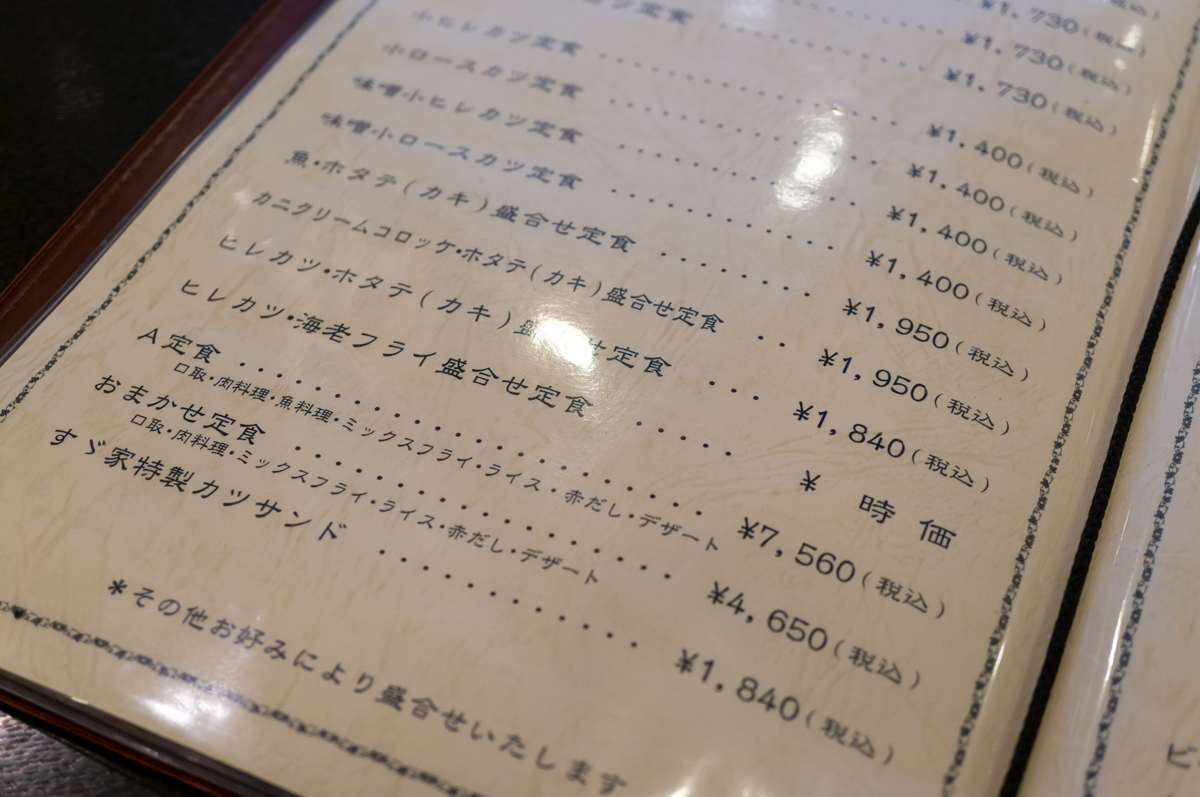 ¥1,730(税込)
¥1,730(税込)
カツ定食 ¥1,730(税込)
小ヒレカツ定食 ¥1,400(税込)
小ロースカツ定食 ¥1,400(税込)
味噌小ヒレカツ定食 ¥1,400(税込)
味噌小ロースカツ定食 ¥1,400(税込)
魚・ホタテ(カキ)盛合せ定食 ¥1,950(税込)
カニクリームコロッケ・ホタテ(カキ)盛合せ定食 ¥1,950(税込)
ヒレカツ・ホタテ(カキ)盛合せ定食 ¥1,840(税込)
ヒレカツ・海老フライ盛合せ定食 ¥ 時価
A定食 ¥7,560(税込)
口取・肉料理・魚料理・ミックスフライ・ライス・赤だし・デザート
おまかせ定食 ¥4,650(税込)
口取・肉料理・ミックスフライ・ライス・赤だし・デザート
すゞ家特製カツサンド ¥1,840(税込)
*その他お好みにより盛合せいたします